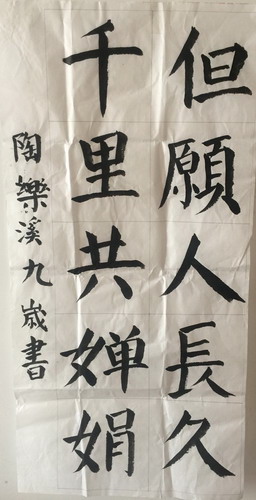 但願人長久
千里共婵娟
陶樂溪九歲書